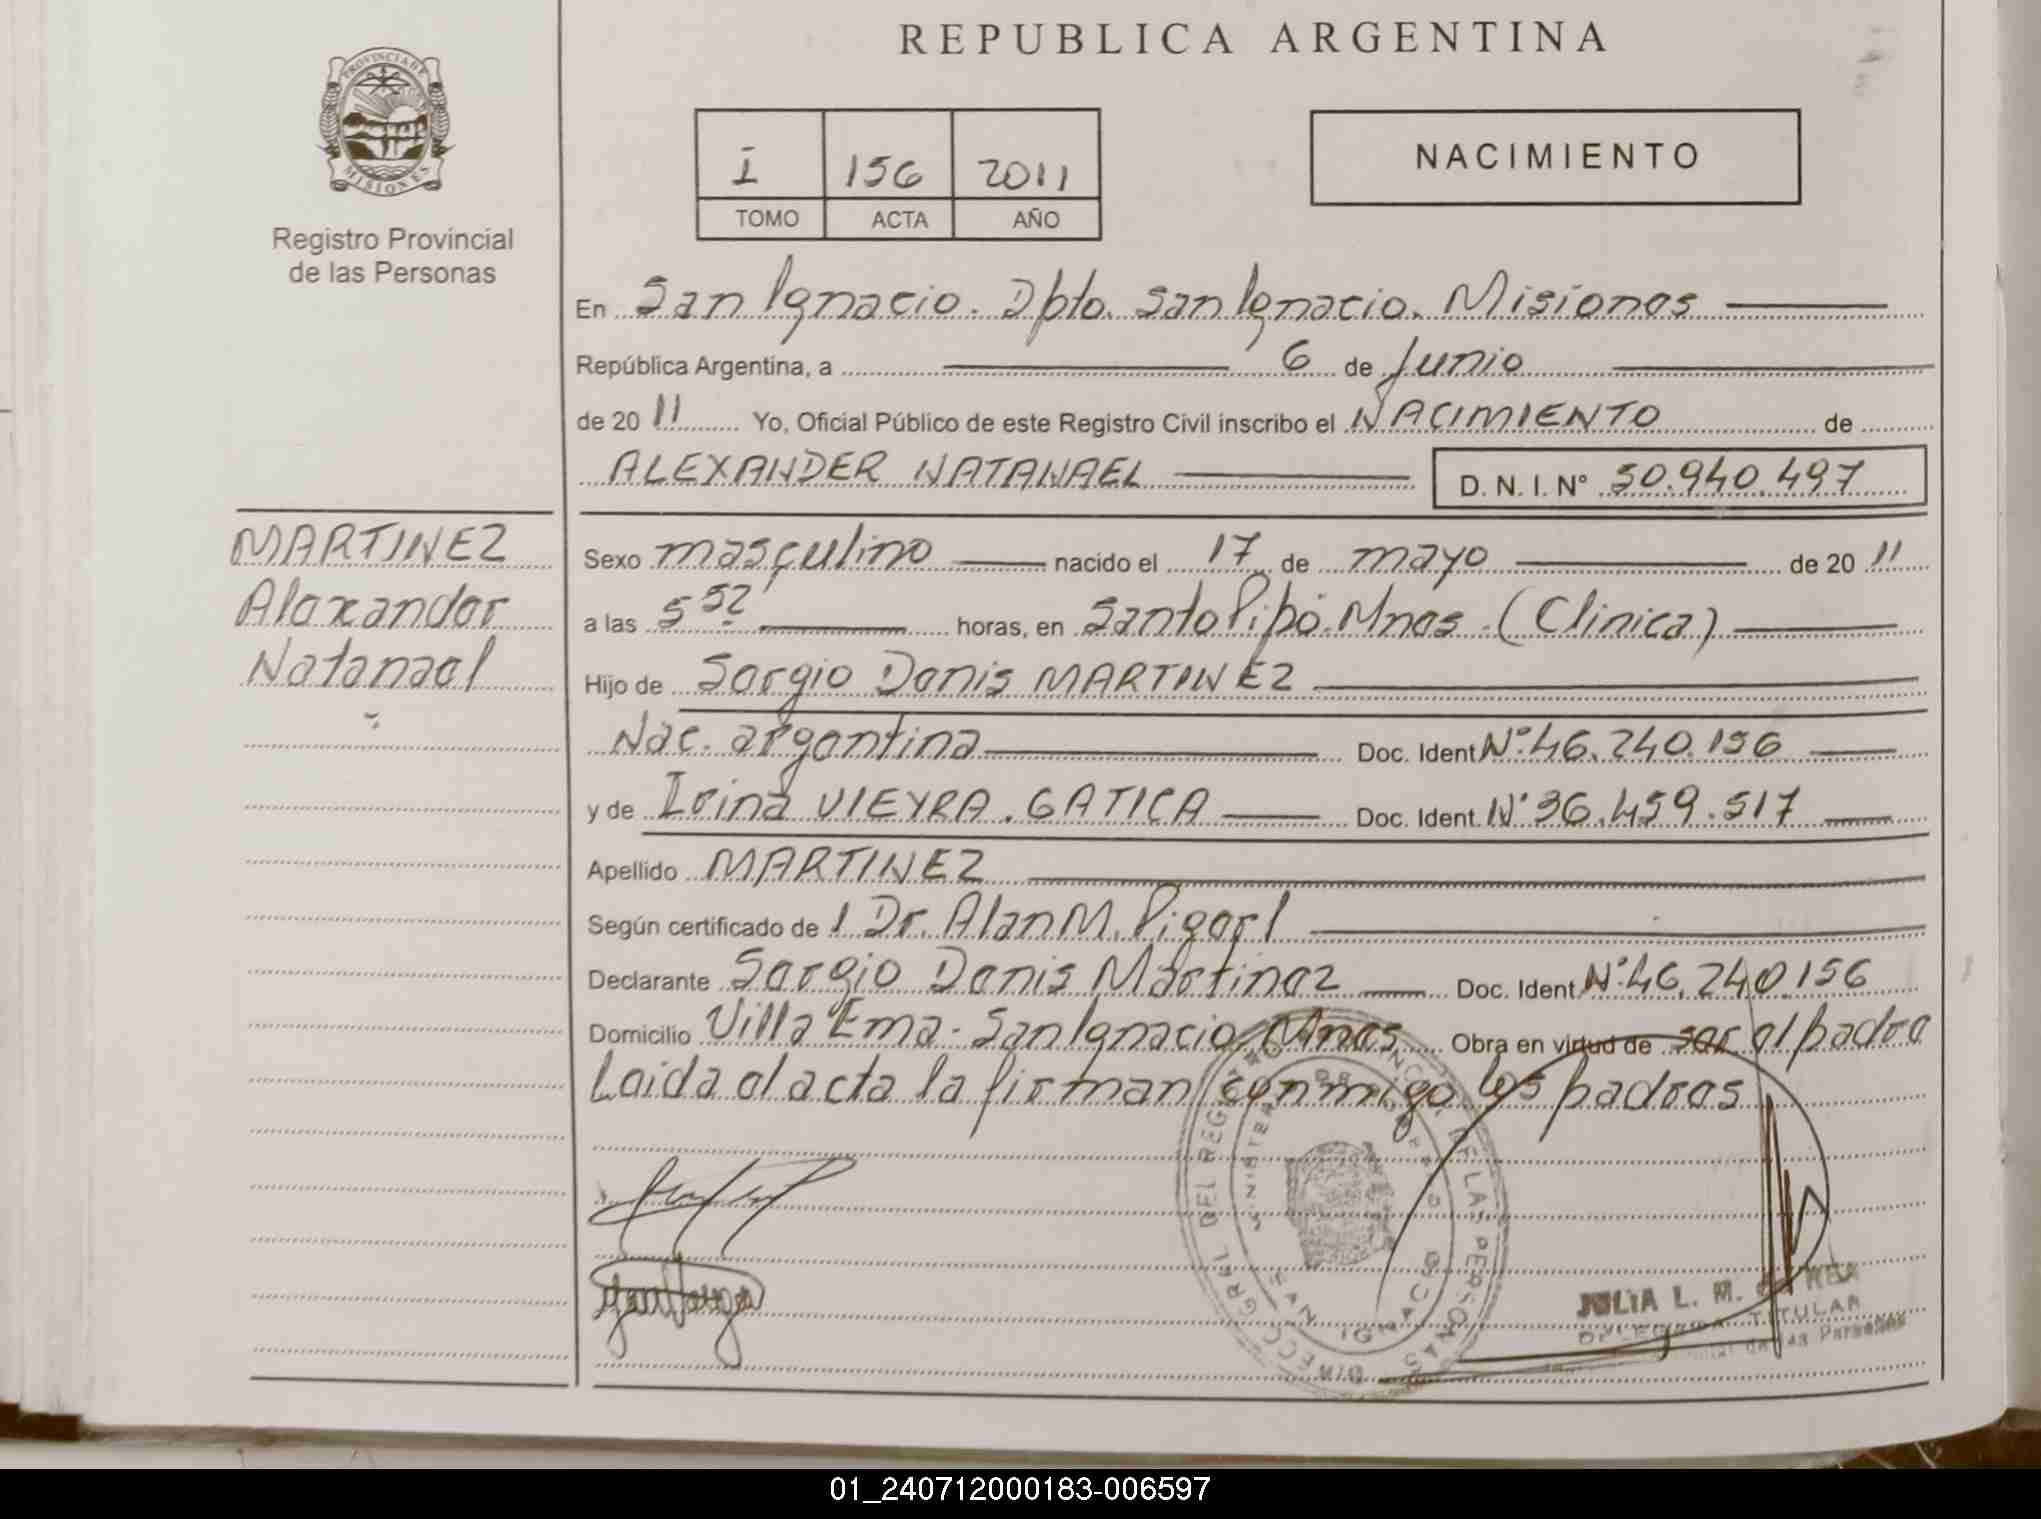 REPUBLICA ARGENTINA
PROVINCIA DE
MISIONES
Registro Provincial
de las Personas
I 156 2011
TOMO ACTA AÑO
NACIMIENTO
En San Ignacio. Dpto. San Ignacio. Misiones
República Argentina, a 6 de Junio
de 20 11 Yo, Oficial Público de este Registro Civil inscribo el NACIMIENTO de
ALEXANDER NATANAEL D. N. I. N° 50.940.497
MARTINEZ
Alexander
Natanael
Sexo masculino nacido el 17 de mayo de 20 11
a las 5 52' horas, en Santo Pipó. Mnes. (Clinica)
Hijo de Sergio Denis MARTINEZ
Nac. argentina Doc. Ident N° 46.240.156
y de Irina VIEYRA. GATICA Doc. Ident. N° 36.459.517
Apellido MARTINEZ
Según certificado de l Dr. Alan M. Pigerl
Declarante Sergio Denis Martinez Doc. Ident N° 46.240.156
Domicilio Villa Ema. San Ignacio Mnes Obra en virtud de ser el padre
Leida el acta la firman conmigo los padres
JULIA L. M. DE
TITULAR
de las Personas
01_240712000183-006597